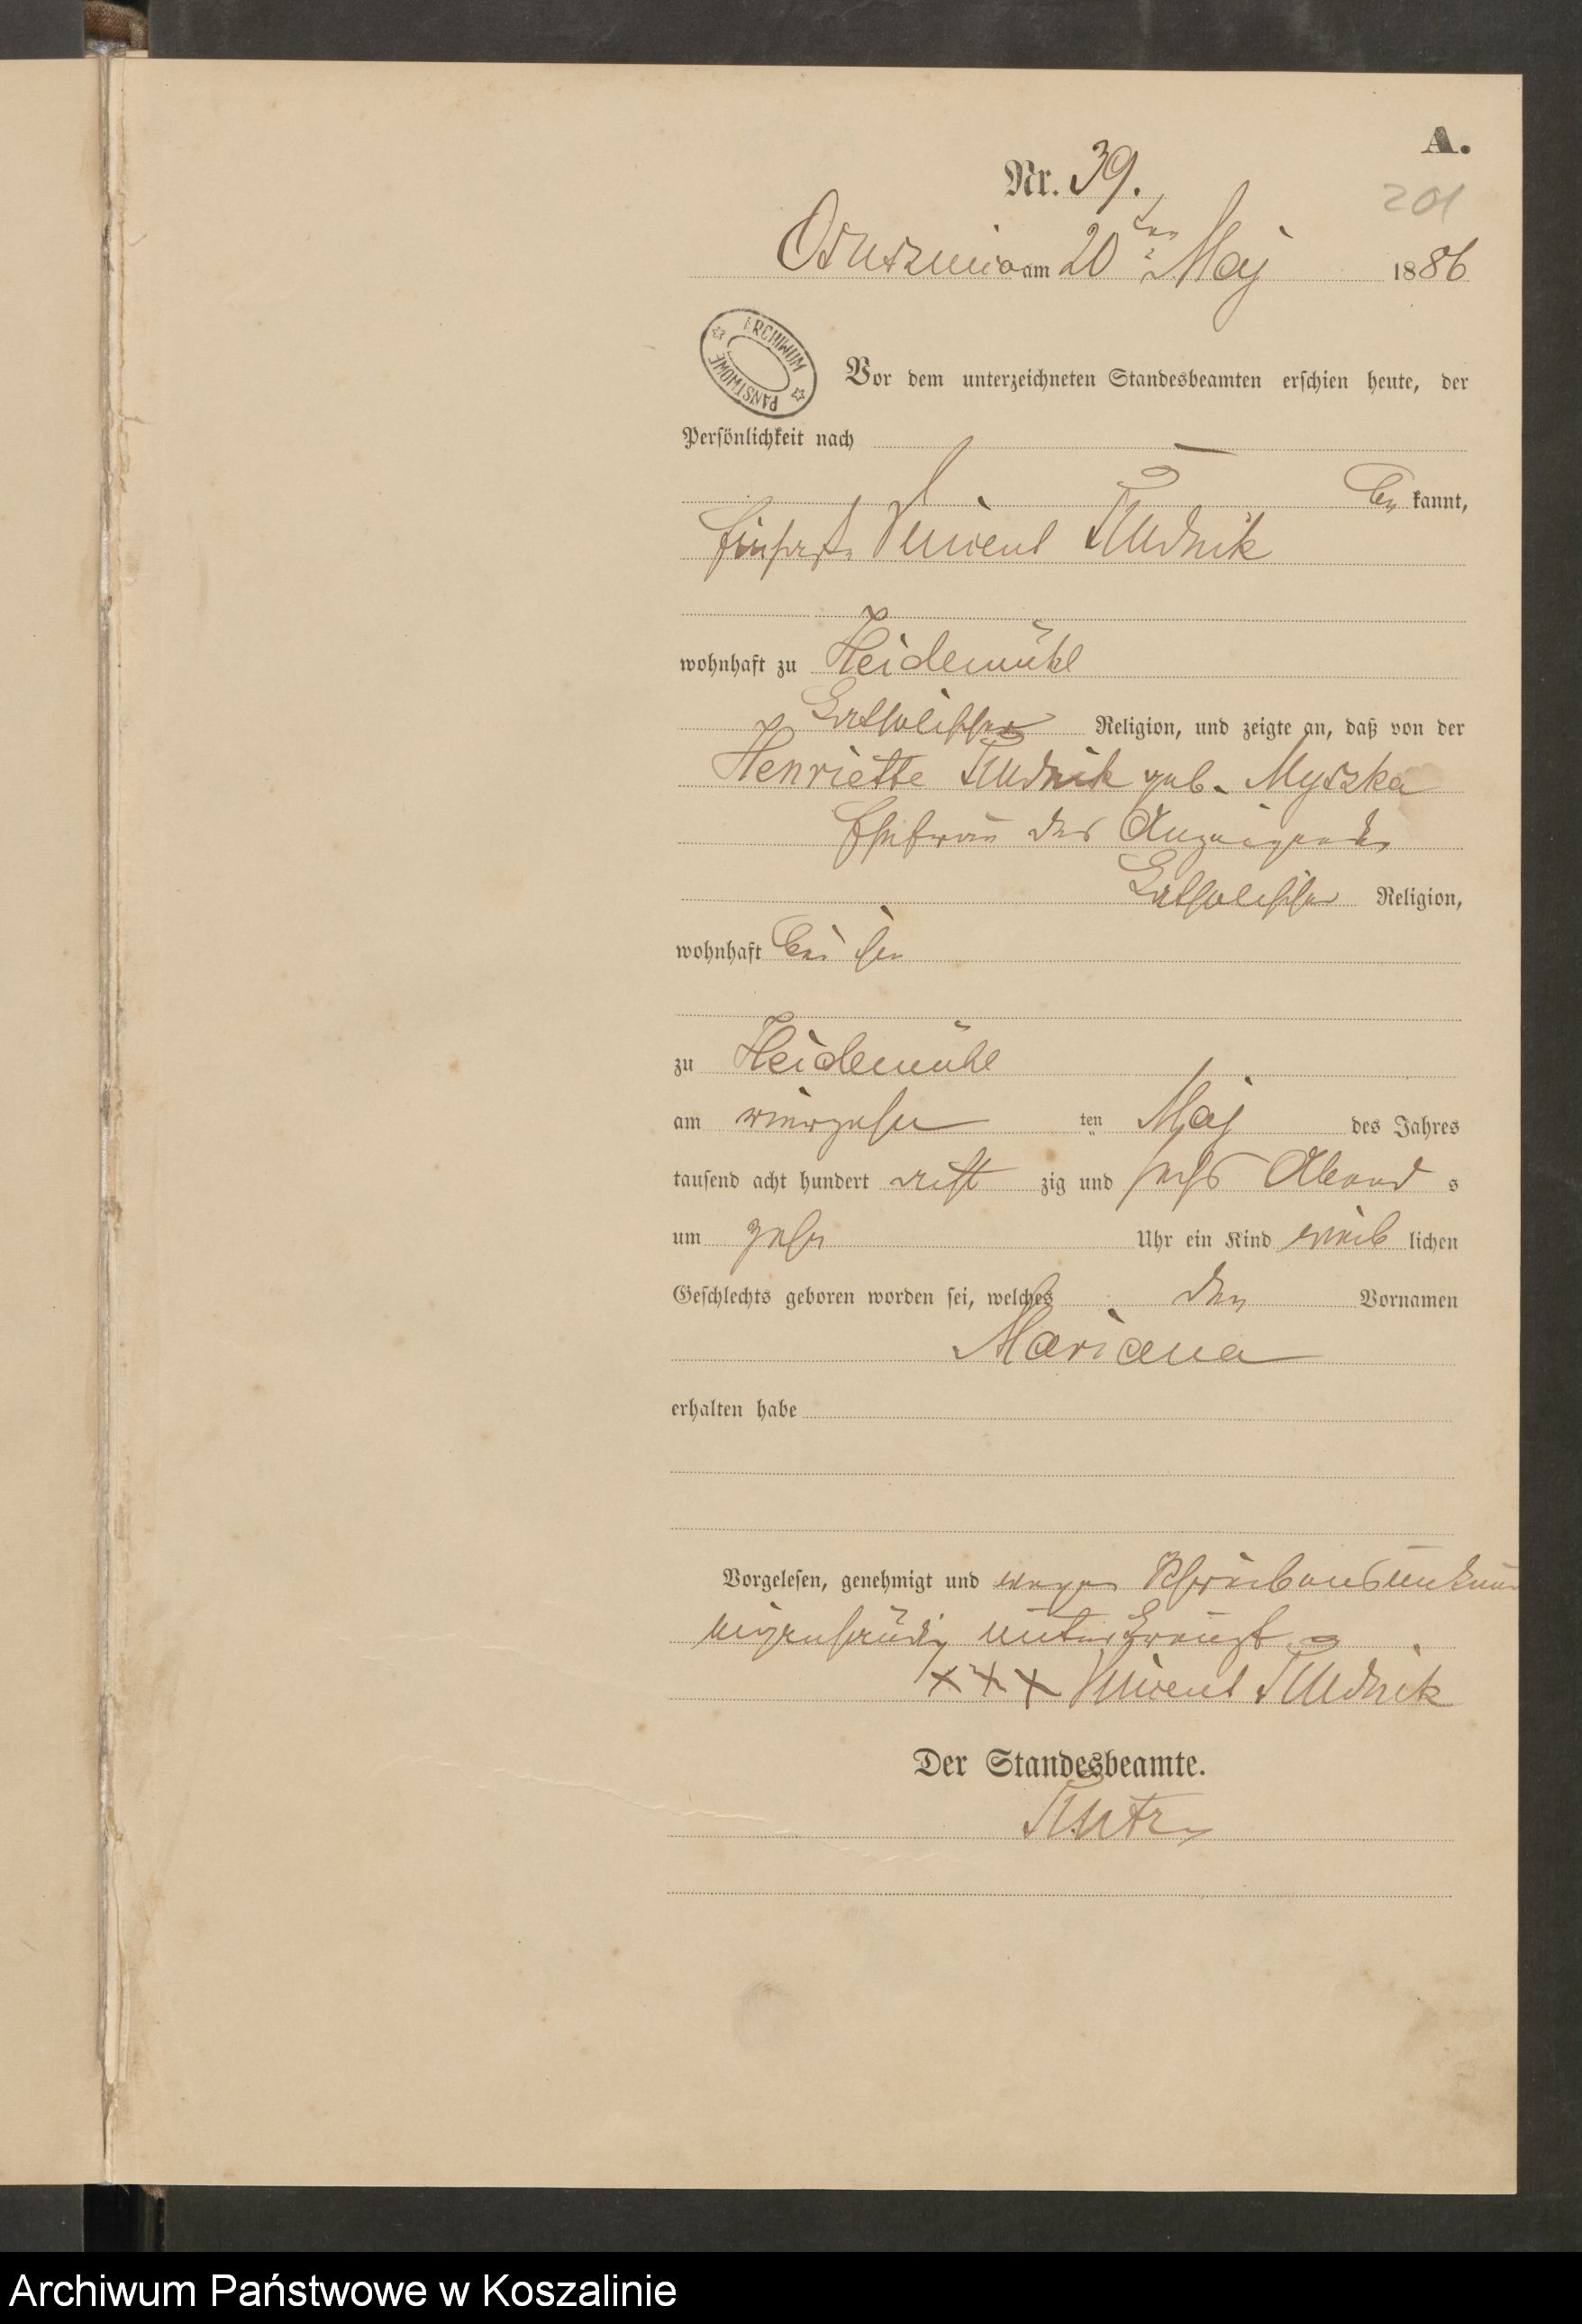 A.
Nr. 39.
201
Ossusznica am 20 ten Maj 1886
ARCHIWUM PAŃSTWOWE
Vor dem unterzeichneten Standesbeamten erschien heute, der
Persönlichkeit nach
be kannt,
Vincent Rudnik
wohnhaft zu Heidemühl
katholischer Religion, und zeigte an, daß von der
Henriette Rudnik geb. Myszka
Ehefrau des Anzeigenden
katholischer Religion,
wohnhaft bei ihm
zu Heidemühl
am vierzehn ten Maj des Jahres
tausend acht hundert acht zig und sechs Abend s
um zehn Uhr ein Kind weib lichen
Geschlechts geboren worden sei, welches den Vornamen
Mariana
erhalten habe
Vorgelesen, genehmigt und wegen Schreibensunkun
eigenhändig unterkreuzt
+++ Vincent Rudnik
Der Standesbeamte.
Archiwum Państwowe w Koszalinie